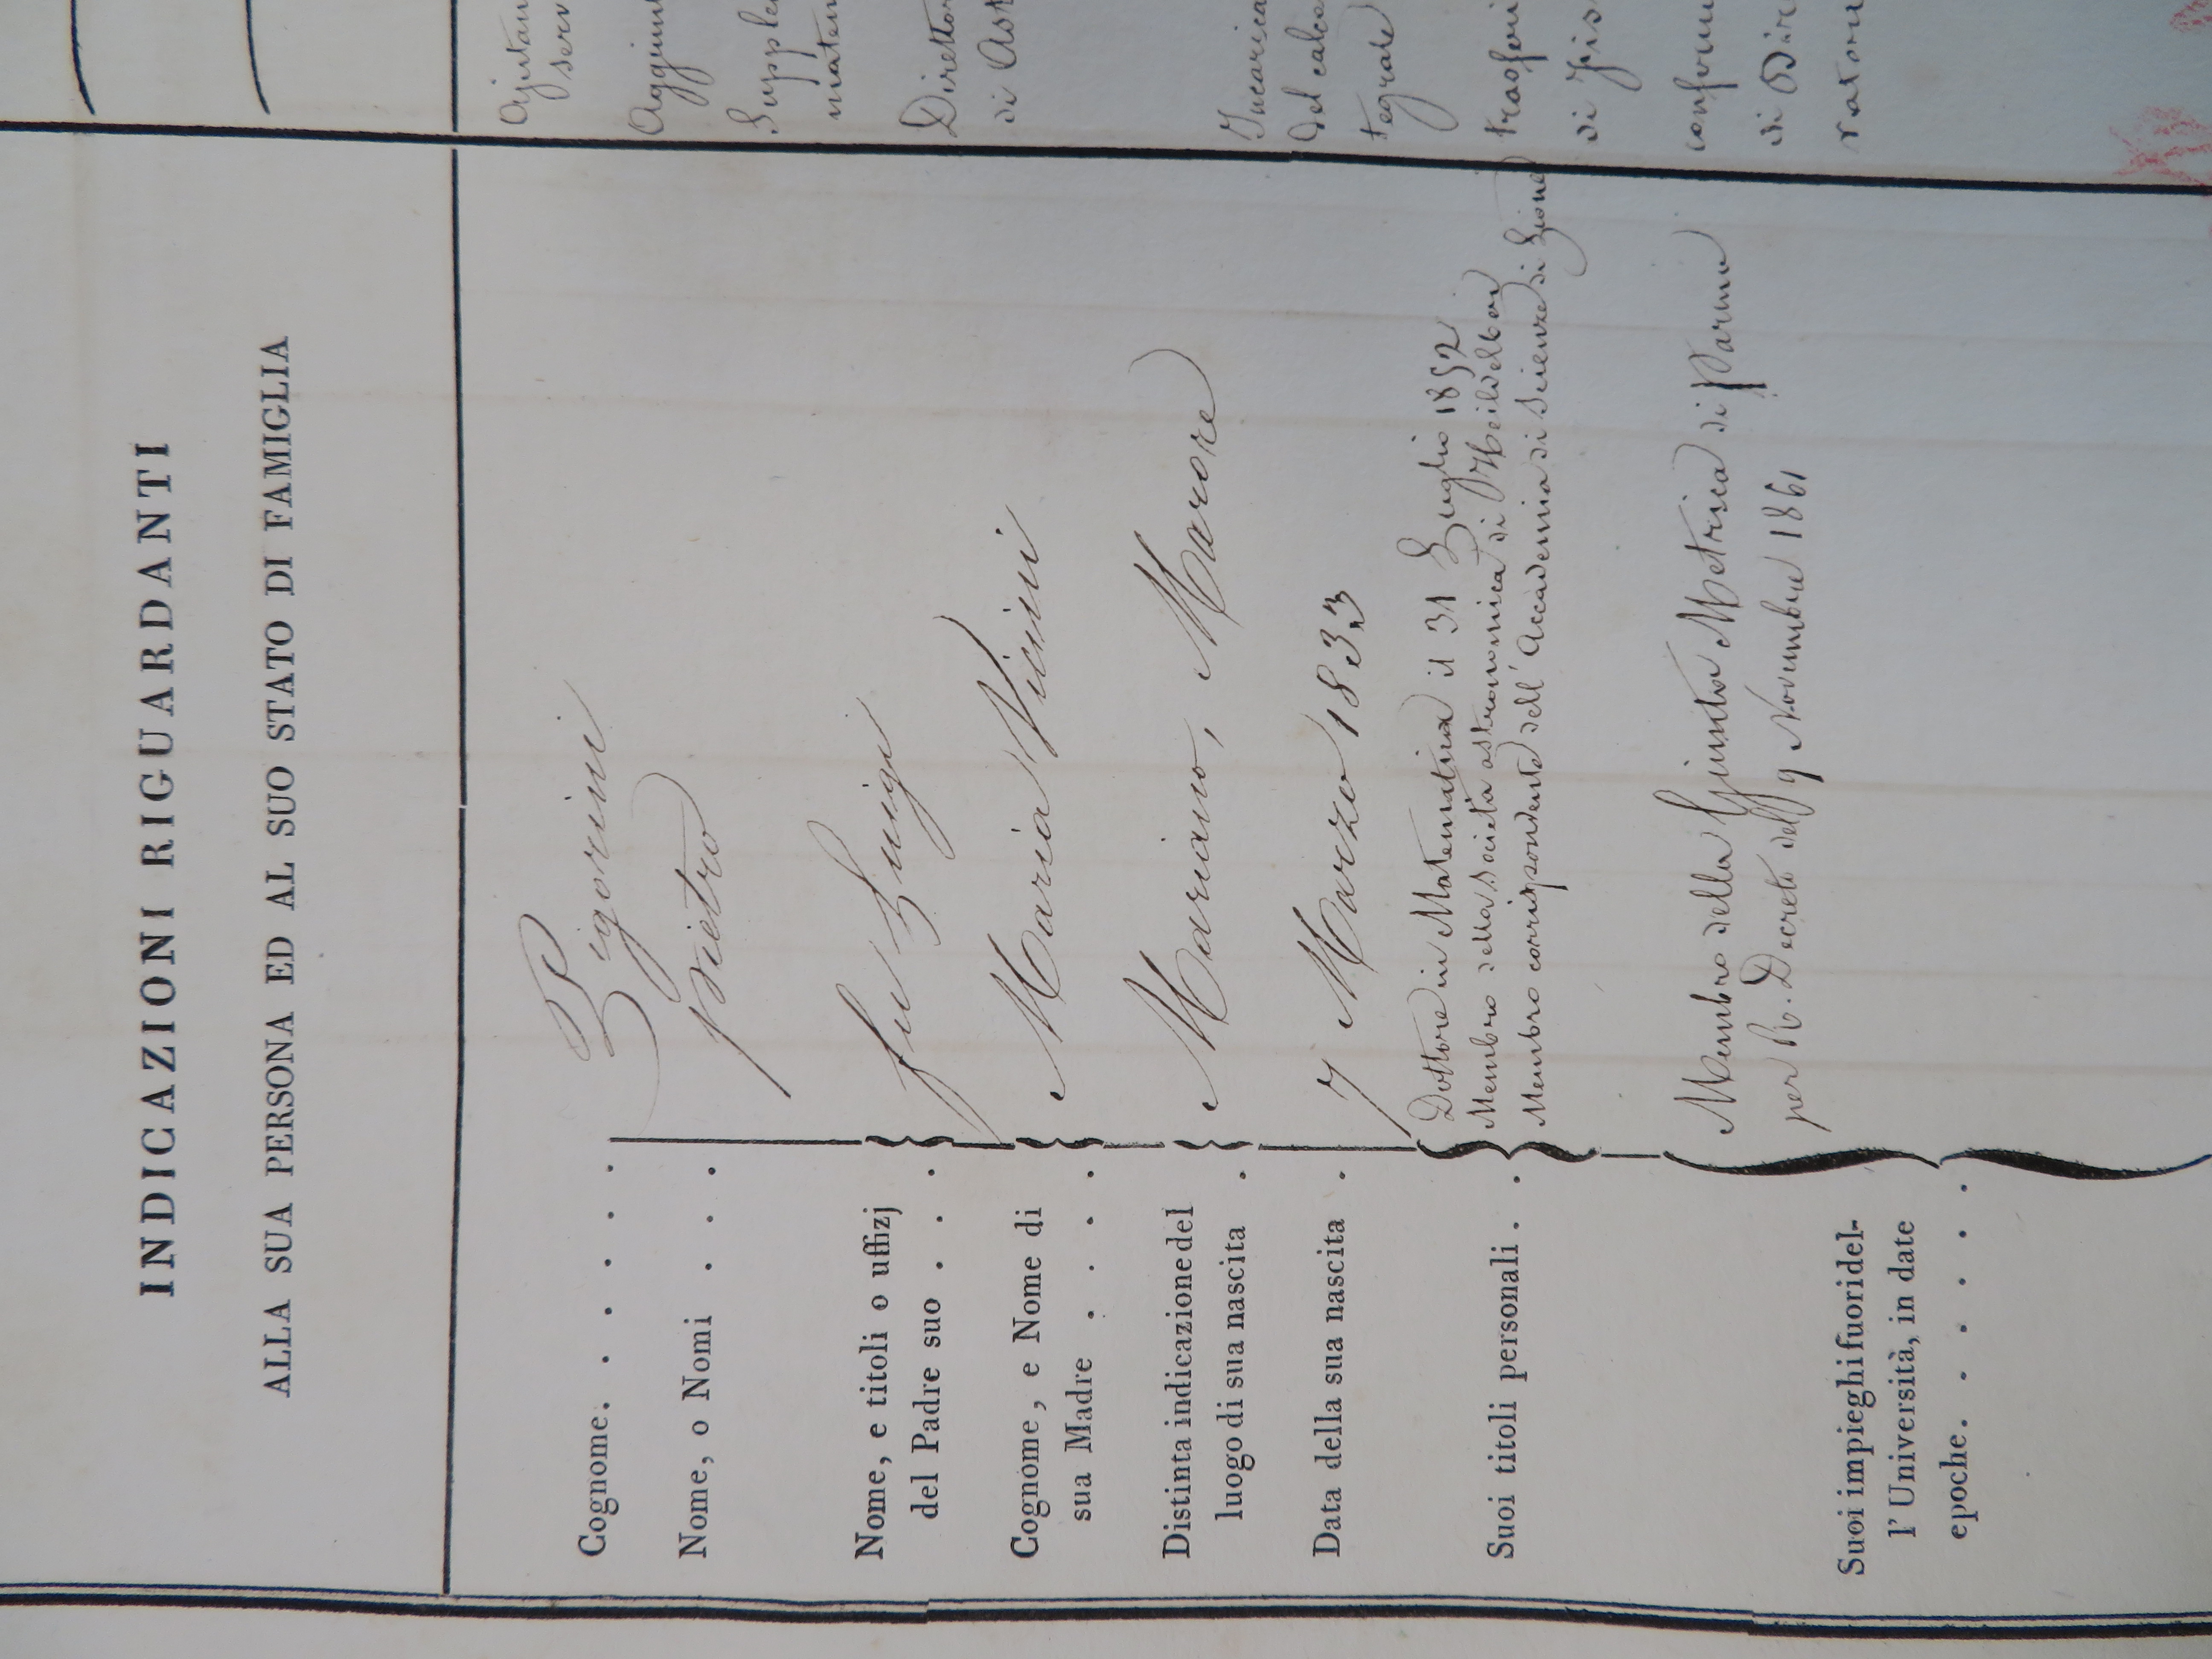 INDICAZIONI RIGUARDANTI
ALLA SUA PERSONA ED AL SUO STATO DI FAMIGLIA
Cognome. . . . . Pigorini
Nome, o Nomi . . . Pietro
Nome, e titoli o uffizj
del Padre suo . . . fu Luigi
Cognome, e Nome di
sua Madre . . . . Maria Vicini
Distinta indicazione del
luogo di sua nascita . Mariano, Marore
Data della sua nascita . 7 Marzo 1833
Suoi titoli personali. .
Dottore in Matematica il 31 Luglio 1852
Membro della società astronomica di Heidelberg
Membro corrispondente dell'Accademia di Scienze di Lione
Suoi impieghi fuori del-
l' Università, in date
epoche. . . . . .
Membro della Giunta Metrica di Parma
per R. Decreto dell 9 Novembre 1861
Ajutan
serv
Aggiunt
Supple
matem
Direttor
di Ast
Incarica
del calco
tegrale
trasferi
di Fis
conferm
di Dir
vatori